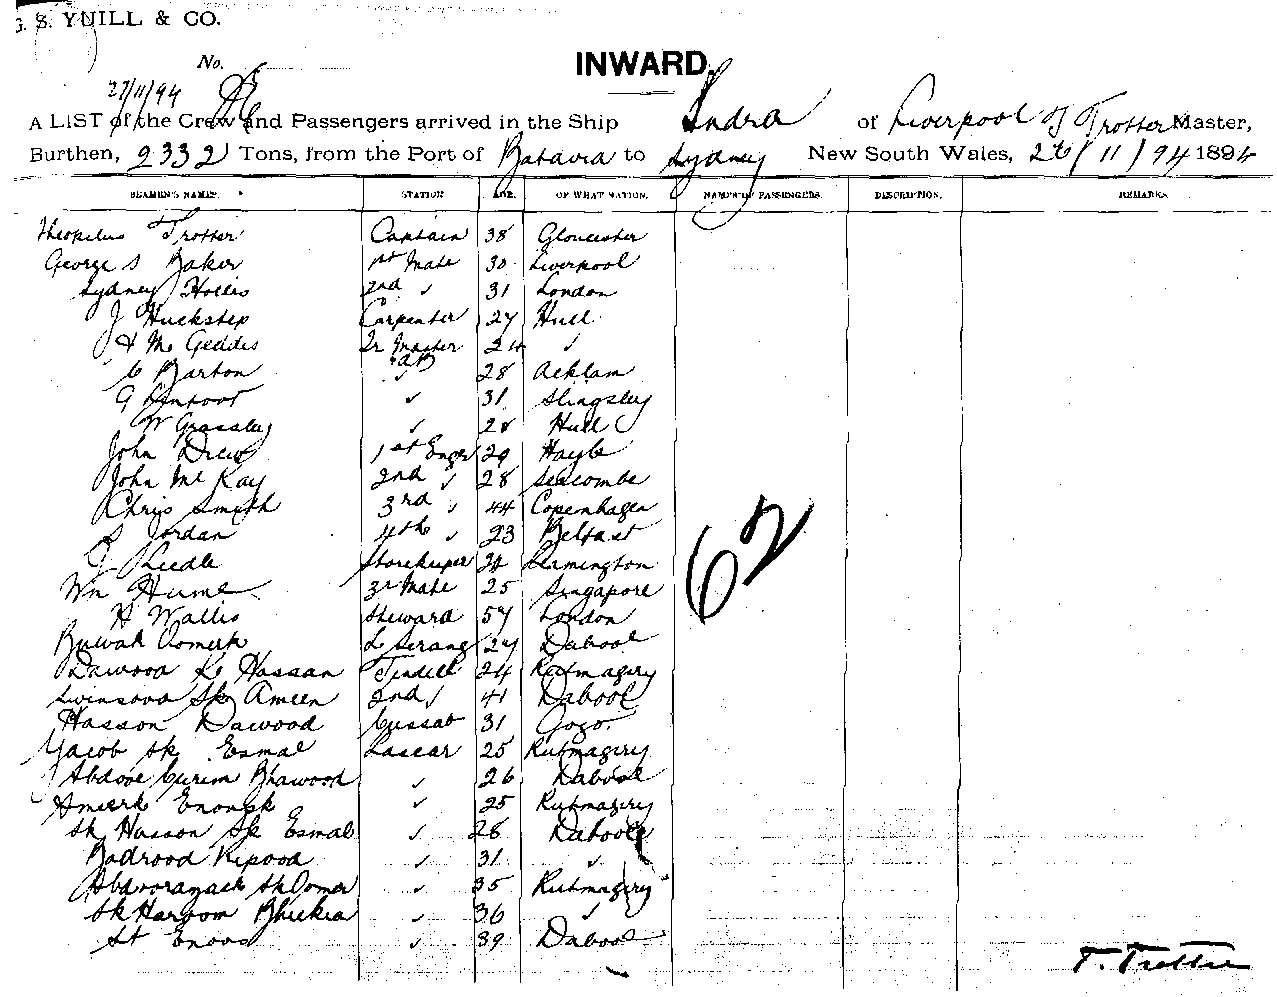 G. S. YUILL & CO.
No.
INWARD.
27/11/94
A LIST of the Crew and Passengers arrived in the Ship Indra of Liverpool T Trotter Master,
Burthen, 2332 Tons, from the Port of Batavia to Sydney New South Wales, 26/11/94 1894
SEAMEN'S NAMES. STATION AGE. OF WHAT NATION. NAMES OF PASSENGERS. DESCRIPTION. REMARKS.
Theophilus Trotter Captain 38 Gloucester
George S Baker 1st Mate 30 Liverpool
Sydney Hollis 2nd " 31 London
J Huckstep Carpenter 27 Hull
H Mc Geddes Qr Master 24 "
AB
C Barton " 28 Acklam
G " 31 Slingsby
W Grassby " 28 Hull
John Drew 1st Engr 29 Hayle
John McKay 2nd " 28 Seacombe
Chris Smyth 3rd " 44 Copenhagen
Jordan 4th " 23 Belfast
J Leedle Storekeeper 24 Leamington
Wm Hume 3r Mate 25 Singapore
H Wallis Steward 57 London
62
Oomerk Serang 27 Dabool
Dawood Hassan Tindell 24 Rutnagiry
Sk Ameen 2nd " 41 Dabool
Hasson Dawood Cussab 31 Gogo
Yacob Sk Esmal Lascar 25 Rutnagiry
Abdool Curim Bhawood " 26 Dabool
Ameerk Enousk " 25 Rutnagiry
Sk Hasson Sk Esmal " 28 Dabool
Badrood " 31 "
Sk Oomer " 35 Rutnagiry
Sk Haroom " 36 "
Enoos " 39 Dabool
T. Trotter